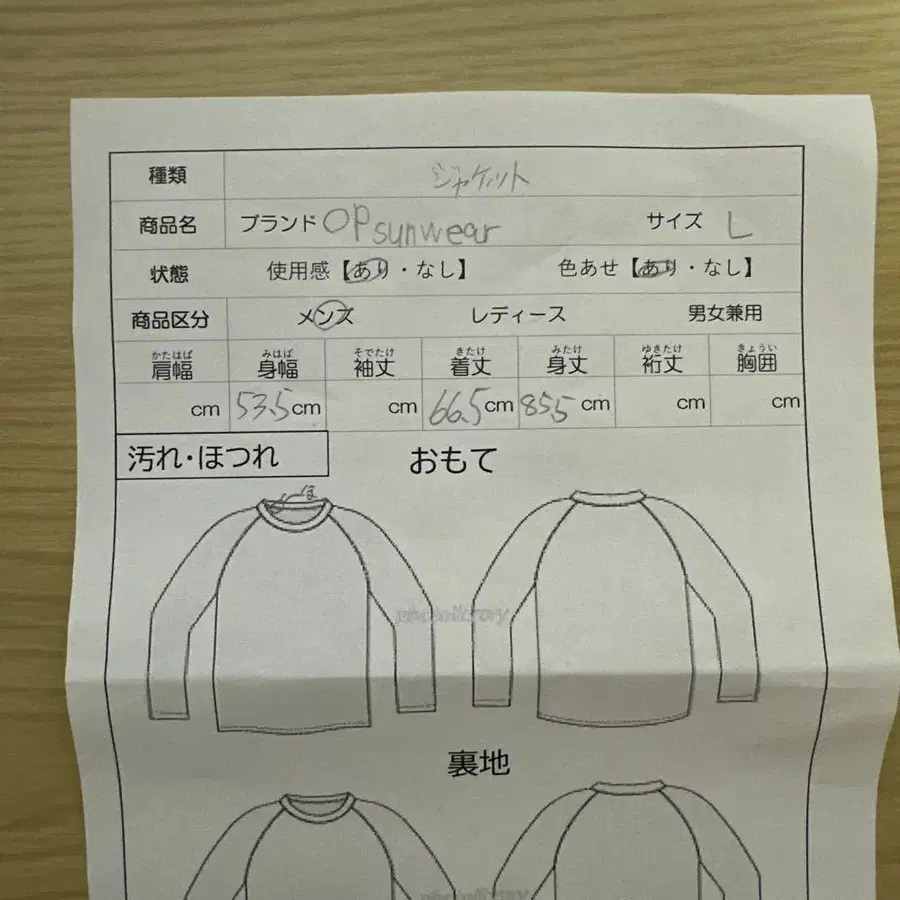 種類 ジャケット
商品名 ブランド OP sunwear サイズ L
状態 使用感【あり・なし】 色あせ【あり・なし】
商品区分 メンズ レディース 男女兼用
かたはば みはば そでたけ きたけ みたけ ゆきたけ きょうい
肩幅 身幅 袖丈 着丈 身丈 裄丈 胸囲
cm 53.5cm cm 66.5cm 85.5 cm cm cm
汚れ・ほつれ おもて
ほ
裏地